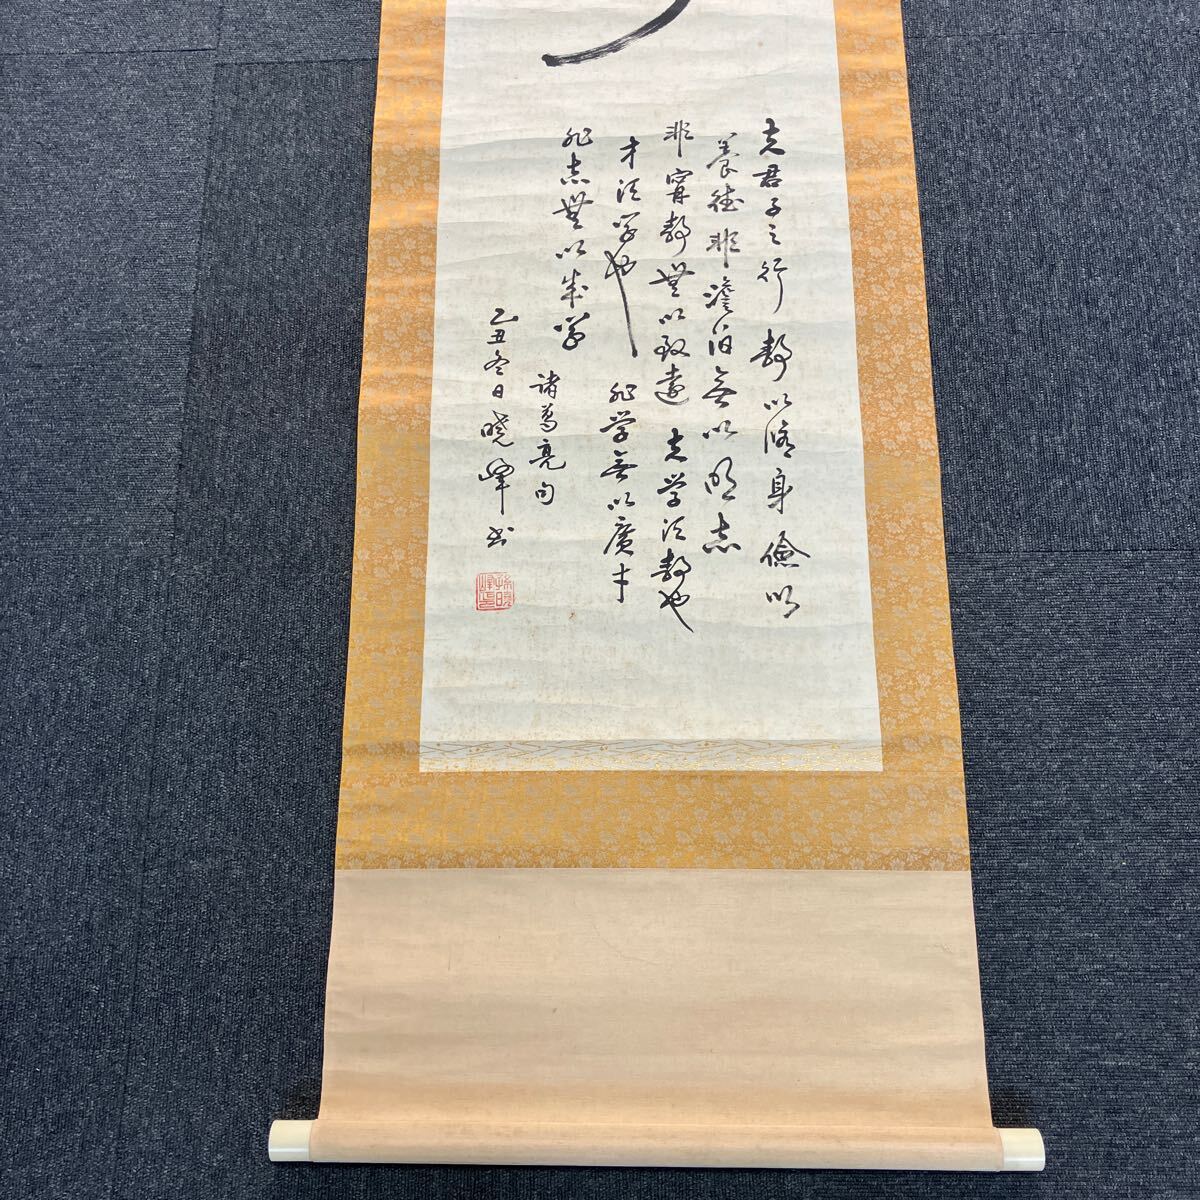 夫君子之行 静以修身 儉以
養徳 非澹泊無以明志
非寧静無以致遠 夫学須静也
才須学也 非学無以廣才
非志無以成学
諸葛亮句
乙丑冬日 暁峰书
孫暁峰印